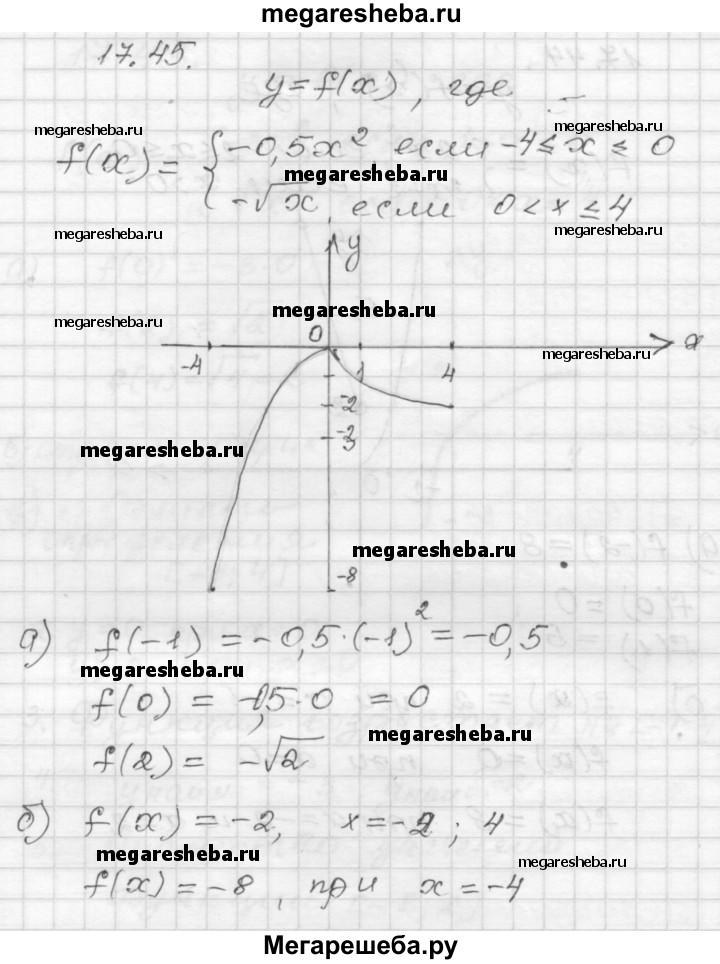 megaresheba.ru
17.45.
y=f(x), где
megaresheba.ru
megaresheba.ru
f(x) = { -0,5x² если -4 ≤ x ≤ 0
megaresheba.ru
-√x, если 0 < x ≤ 4
megaresheba.ru
megaresheba.ru
y
megaresheba.ru
megaresheba.ru
0
-4 1 4 x
megaresheba.ru
-2
-3
megaresheba.ru
megaresheba.ru
-8
а) f(-1) = -0,5·(-1)² = -0,5
megaresheba.ru
f(0) = -0,5·0 = 0
megaresheba.ru
f(2) = -√2
б) f(x) = -2, x = -2; 4
megaresheba.ru
megaresheba.ru
f(x) = -8, при x = -4
Мегарешеба.ру